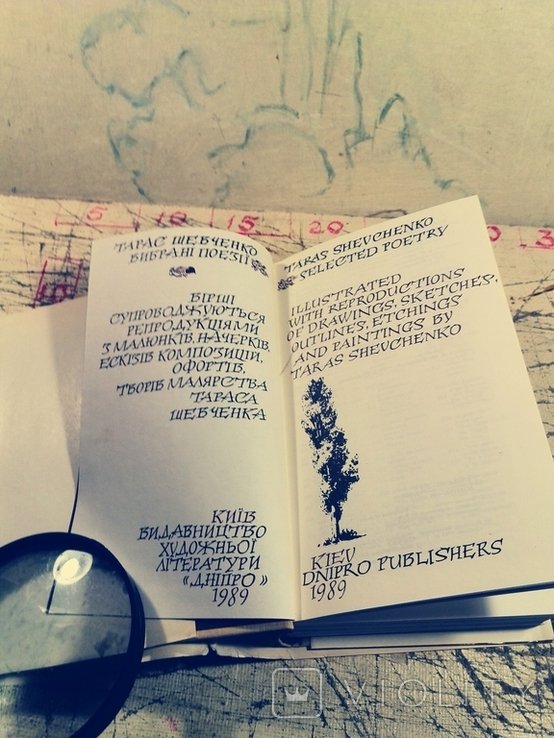 5 10 15 20
ТАРАС ШЕВЧЕНКО
ВИБРАНІ ПОЕЗІЇ
ВІРШІ
СУПРОВОДЖУЮТЬСЯ
РЕПРОДУКЦІЯМИ
З МАЛЮНКІВ, НАЧЕРКІВ,
ЕСКІЗІВ КОМПОЗИЦІЙ,
ОФОРТІВ,
ТВОРІВ МАЛЯРСТВА
ТАРАСА
ШЕВЧЕНКА
КИЇВ
ВИДАВНИЦТВО
ХУДОЖНЬОЇ
ЛІТЕРАТУРИ
«ДНІПРО»
1989
TARAS SHEVCHENKO
SELECTED POETRY
ILLUSTRATED
WITH REPRODUCTIONS
OF DRAWINGS, SKETCHES,
OUTLINES, ETCHINGS
AND PAINTINGS BY
TARAS SHEVCHENKO
KIEV
DNIPRO PUBLISHERS
1989
VIOLITY